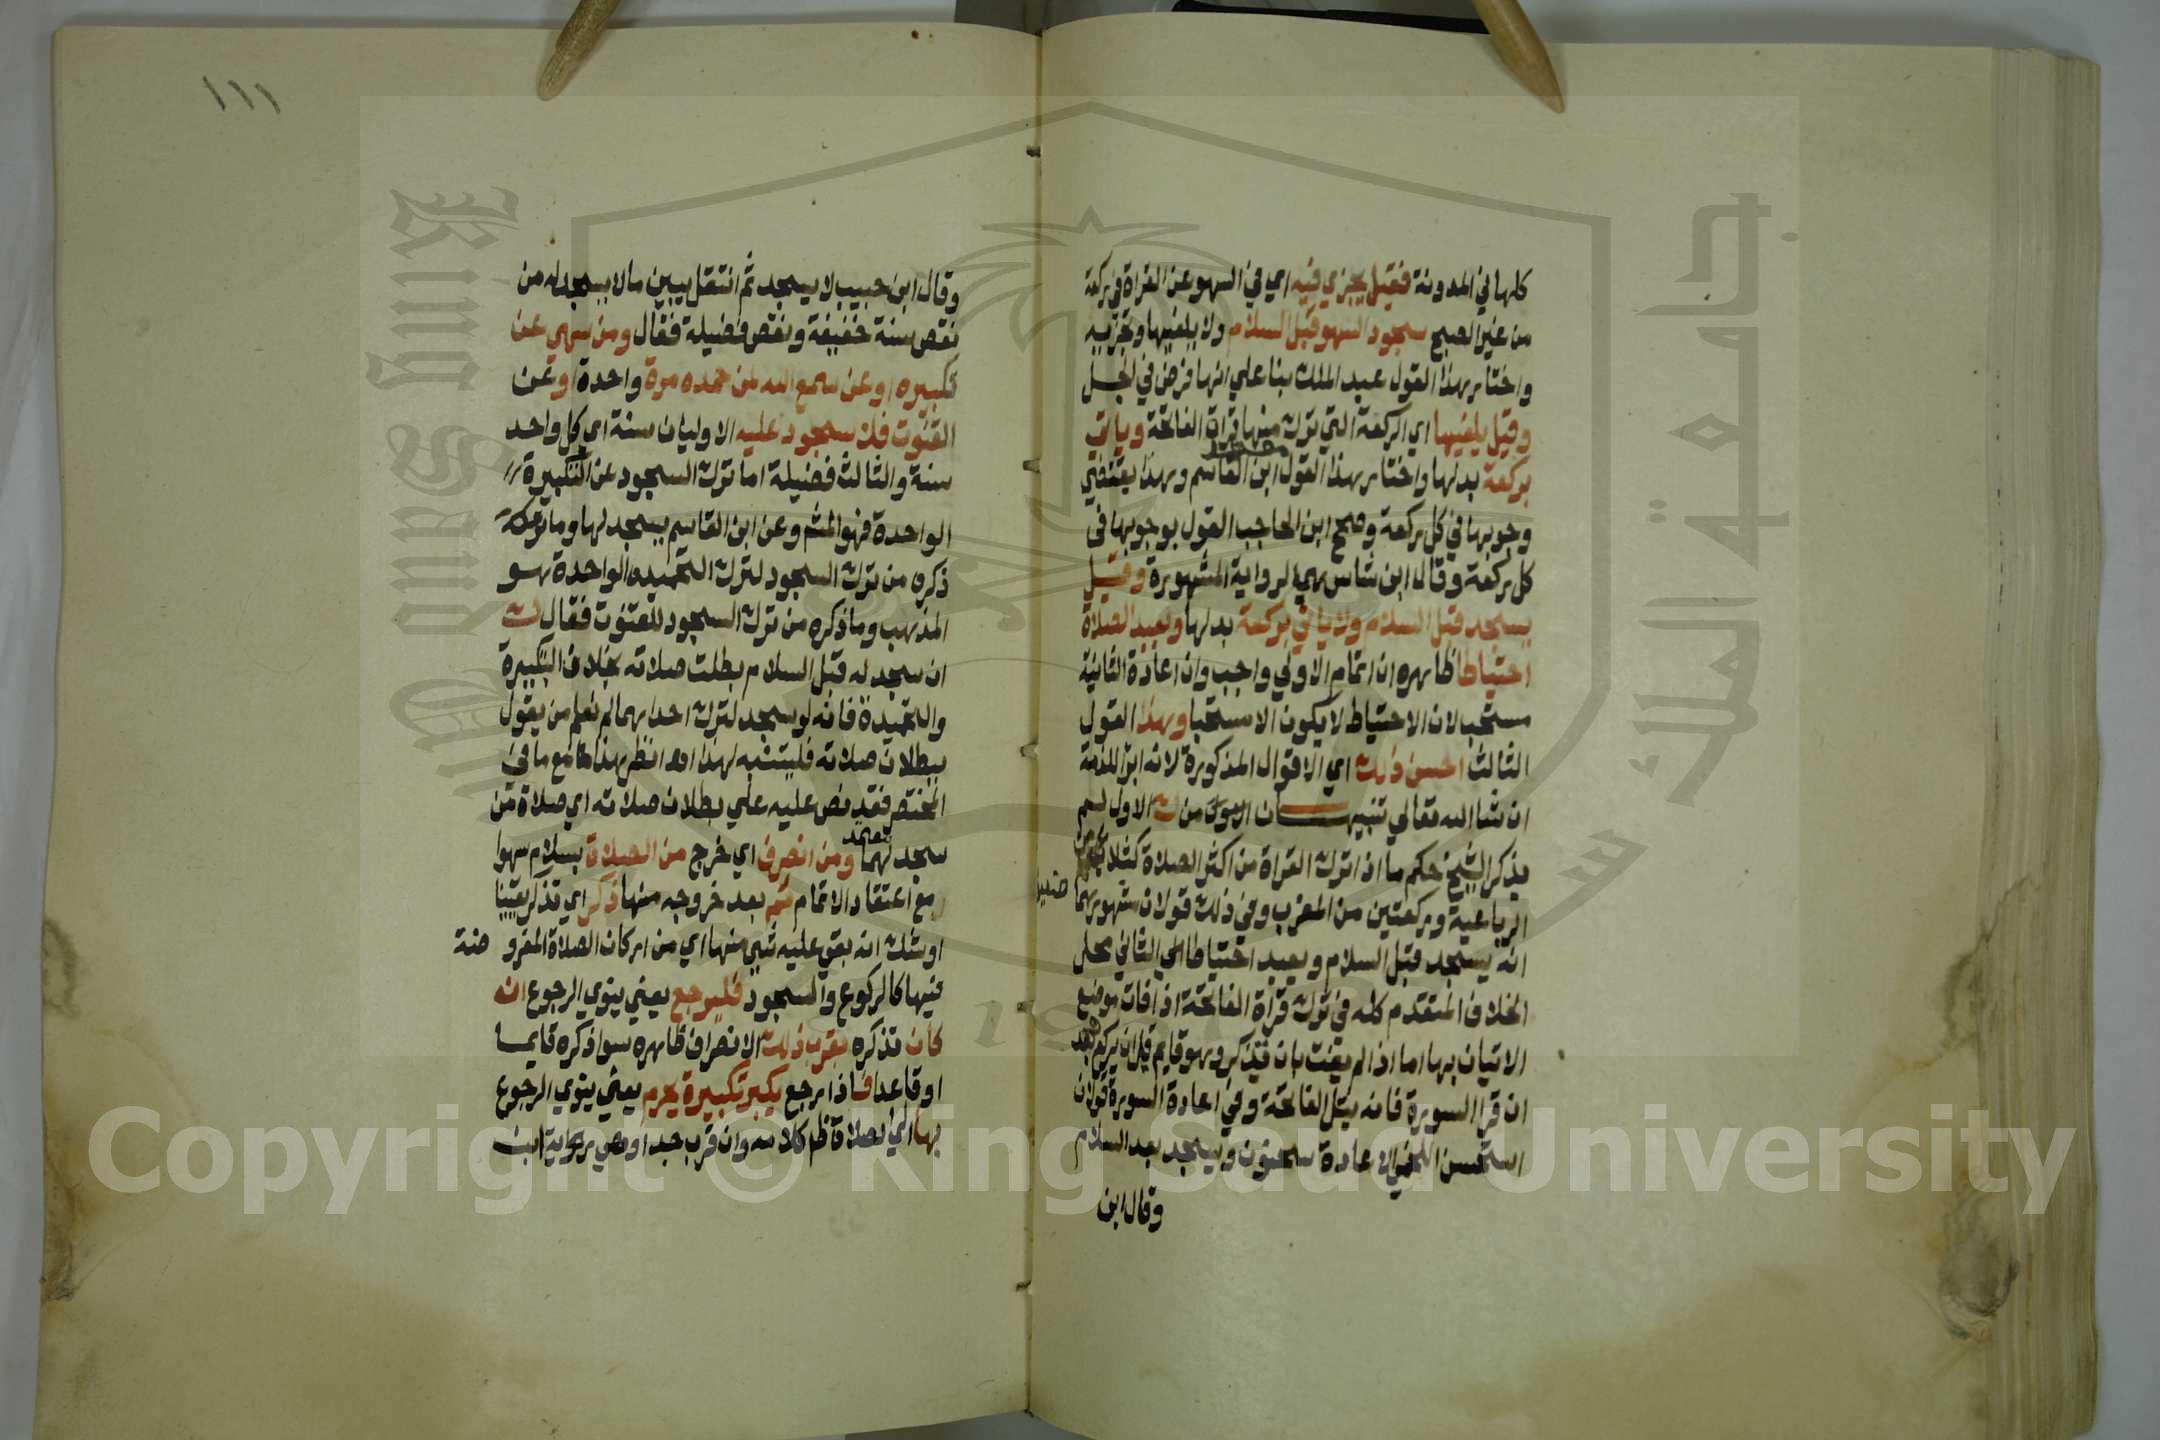 كلها في المدونة فقيل يجزي فيه اي في السهو عن القراة في ركعة
من غير الصبح سجود السهو قبل السلام ولا يلغيها وتجزيه
واختار هذا القول عبد الملك بنا علي انها فرض في الجل
وقيل يلغيها اي الركعة التي ترك منها قراة الفاتحة وياتي
بركعة بدلها واختار هذا القول ابن القاسم وهذا يقتضي
وجوبها في كل ركعة وصحح ابن الحاجب القول بوجوبها في
كل ركعة وقال ابن شاس هي الرواية المشهورة وقيل
يسجد قبل السلام ولا ياتي بركعة بدلها ويعيد الصلاة
احتياطا ظاهره ان اتمام الاولي واجب وان اعادة الثانية
مستحب لان الاحتياط لا يكون الا مستحبا وهذا القول
الثالث احسن ذلك اي الاقوال المذكورة لانه ابرا للذمة
ان شا الله تعالي تنبيهان الاول من الاول لم
يذكر الشيخ حكم ما اذا ترك القراة من اكثر الصلاة كثلاث من
الرباعية وركعتين من المغرب وفي ذلك قولان شهورهما
انه يسجد قبل السلام ويعيد احتياطا الثاني محل
الخلاف المتقدم كله في ترك قراة الفاتحة اذا فات موضع
الاتيان بها اما اذا لم يفت بان تذكر وهو قايم قبل ان يركع
ان قرا السورة فانه يقرا الفاتحة وفي اعادة السورة قولان
استحسن اللخمي الاعادة سحنون ويسجد بعد السلام
وقال ابن
١١١
وقال ابن حبيب لا يسجد ثم انتقل يبين ما لا يسجد له من
نقص سنة خفيفة ونقص فضيلة فقال ومن سهي عن
تكبيره او عن سمع الله لمن حمده مرة واحدة او عن
القنوت فلا سجود عليه الاوليان سنة اي كل واحد
سنة والثالث فضيلة اما ترك السجود عن التكبيرة
الواحدة فهو المش وعن ابن القاسم يسجد لها وما
ذكره من ترك السجود لترك التحميده الواحدة هو
المذهب وما ذكره من ترك السجود للقنوت فقال
ان سجد له قبل السلام بطلت صلاته بخلاف التكبيرة
والتحميدة فانه لو سجد لترك احداهما لم نعلم من يقول
ببطلان صلاته فليتنبه لهذا اه انظر هذا مع ما في
المختصر فقد نص عليه علي بطلان صلاته اي صلاة من
سجد لهما ومن انصرف اي خرج من الصلاة بسلام سهوا
مع اعتقاد الاتمام ثم بعد خروجه منها ذكر اي تذكر يقينا
او شك انه بقي عليه شي منها اي من اركان الصلاة المفروضة
فيها كالركوع والسجود فليرجع يعني ينوي الرجوع انه
كان تذكره بقرب ذلك الانصراف ظاهره سوا ذكره قايما
او قاعدا فاذا رجع يكبر تكبيرة يحرم يعني ينوي الرجوع
بها الي الصلاة ظ كلامه وان قرب جدا وهي رواية ابن
Copyright © King Saud University
King Saud University
جامعة الملك سعود